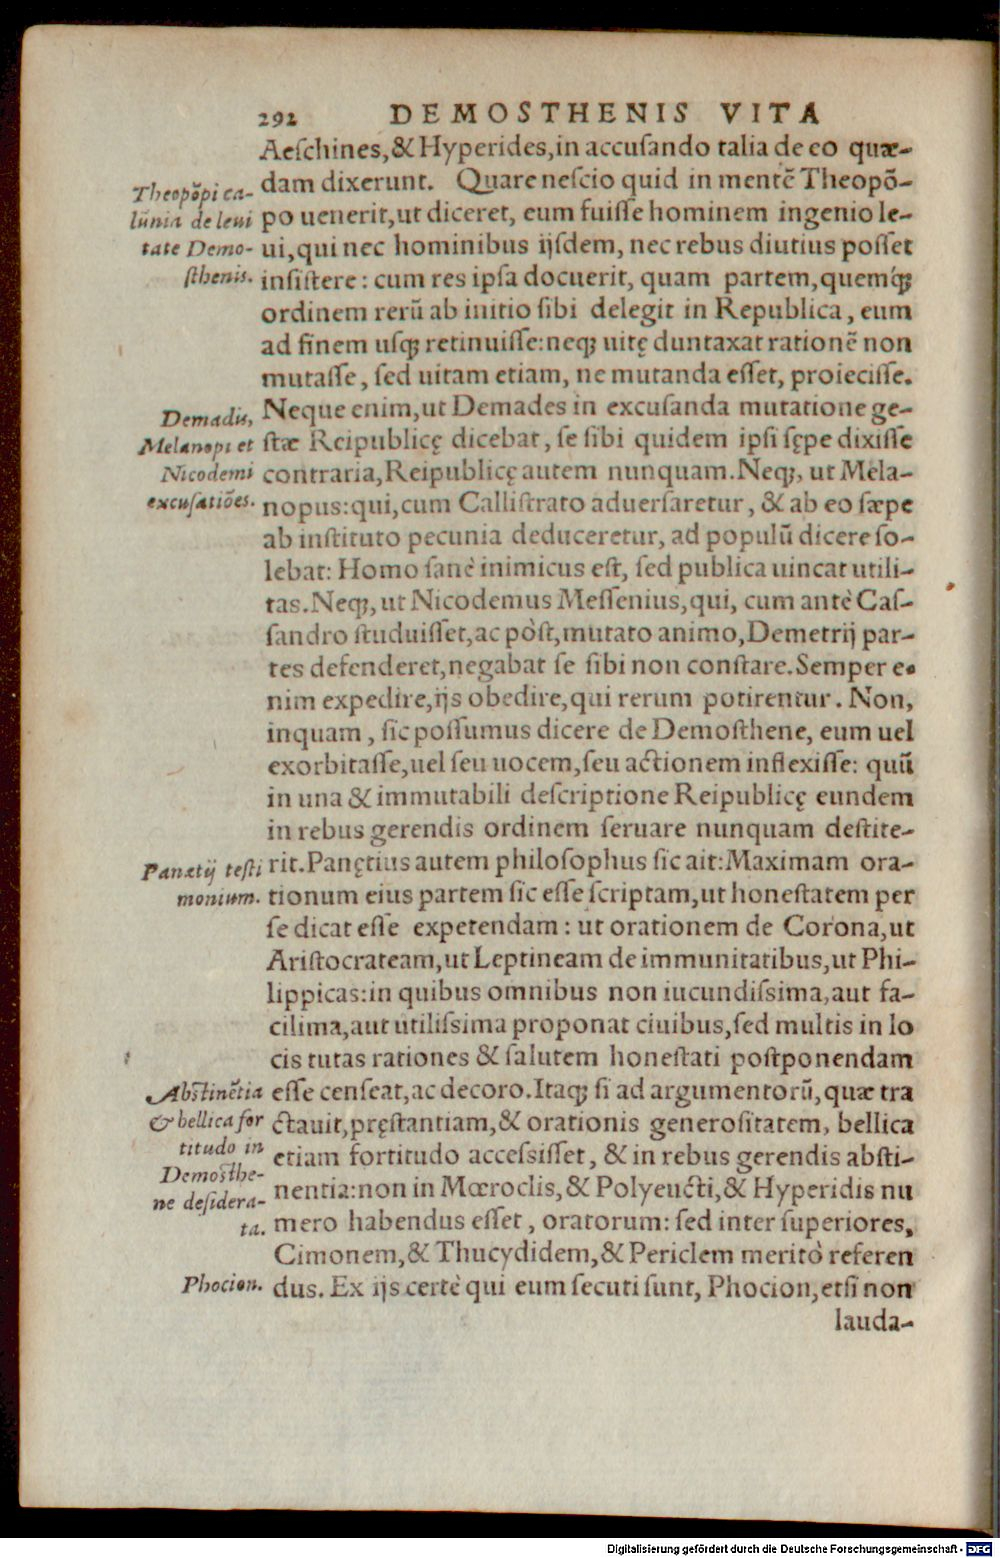 292 DEMOSTHENIS VITA
Aeſchines, & Hyperides, in accuſando talia de eo quæ-
dam dixerunt. Quare neſcio quid in mentē Theopō-
po uenerit, ut diceret, eum fuiſſe hominem ingenio le-
ui, qui nec hominibus ijſdem, nec rebus diutius poſſet
inſiſtere: cum res ipſa docuerit, quam partem, quemq́;
ordinem rerū ab initio ſibi delegit in Republica, eum
ad finem uſq; retinuiſſe: neq; uitę duntaxat rationē non
mutaſſe, ſed uitam etiam, ne mutanda eſſet, proieciſſe.
Neque enim, ut Demades in excuſanda mutatione ge-
ſtæ Reipublicę dicebat, ſe ſibi quidem ipſi ſępe dixiſſe
contraria, Reipublicę autem nunquam. Neq;, ut Mela-
nopus: qui, cum Calliſtrato aduerſaretur, & ab eo ſæpe
ab inſtituto pecunia deduceretur, ad populū dicere ſo-
lebat: Homo ſanè inimicus eſt, ſed publica uincat utili-
tas. Neq;, ut Nicodemus Meſſenius, qui, cum antè Caſ-
ſandro ſtuduiſſet, ac pòſt, mutato animo, Demetrij par-
tes defenderet, negabat ſe ſibi non conſtare. Semper e-
nim expedire, ijs obedire, qui rerum potirentur. Non,
inquam, ſic poſſumus dicere de Demoſthene, eum uel
exorbitaſſe, uel ſeu uocem, ſeu actionem inflexiſſe: quū
in una & immutabili deſcriptione Reipublicę eundem
in rebus gerendis ordinem ſeruare nunquam deſtite-
rit. Panętius autem philoſophus ſic ait: Maximam ora-
tionum eius partem ſic eſſe ſcriptam, ut honeſtatem per
ſe dicat eſſe expetendam: ut orationem de Corona, ut
Ariſtocrateam, ut Leptineam de immunitatibus, ut Phi-
lippicas: in quibus omnibus non iucundiſsima, aut fa-
cilima, aut utiliſsima proponat ciuibus, ſed multis in lo
cis tutas rationes & ſalutem honeſtati poſtponendam
eſſe cenſeat, ac decoro. Itaq; ſi ad argumentorū, quæ tra
ctauit, pręſtantiam, & orationis generoſitatem, bellica
etiam fortitudo acceſsiſſet, & in rebus gerendis abſti-
nentia: non in Mœroclis, & Polyeucti, & Hyperidis nu
mero habendus eſſet, oratorum: ſed inter ſuperiores,
Cimonem, & Thucydidem, & Periclem meritò referen
dus. Ex ijs certè qui eum ſecuti ſunt, Phocion, etſi non
lauda-
Theopōpi ca-
lūnia de leui
tate Demo-
ſthenis.
Demadis,
Melanopi et
Nicodemi
excuſatiōes.
Panætij teſti
monium.
Abſtinētia
& bellica for
titudo in
Demoſthe-
ne deſidera-
ta.
Phocion.
Digitalisierung gefördert durch die Deutsche Forschungsgemeinschaft - DFG